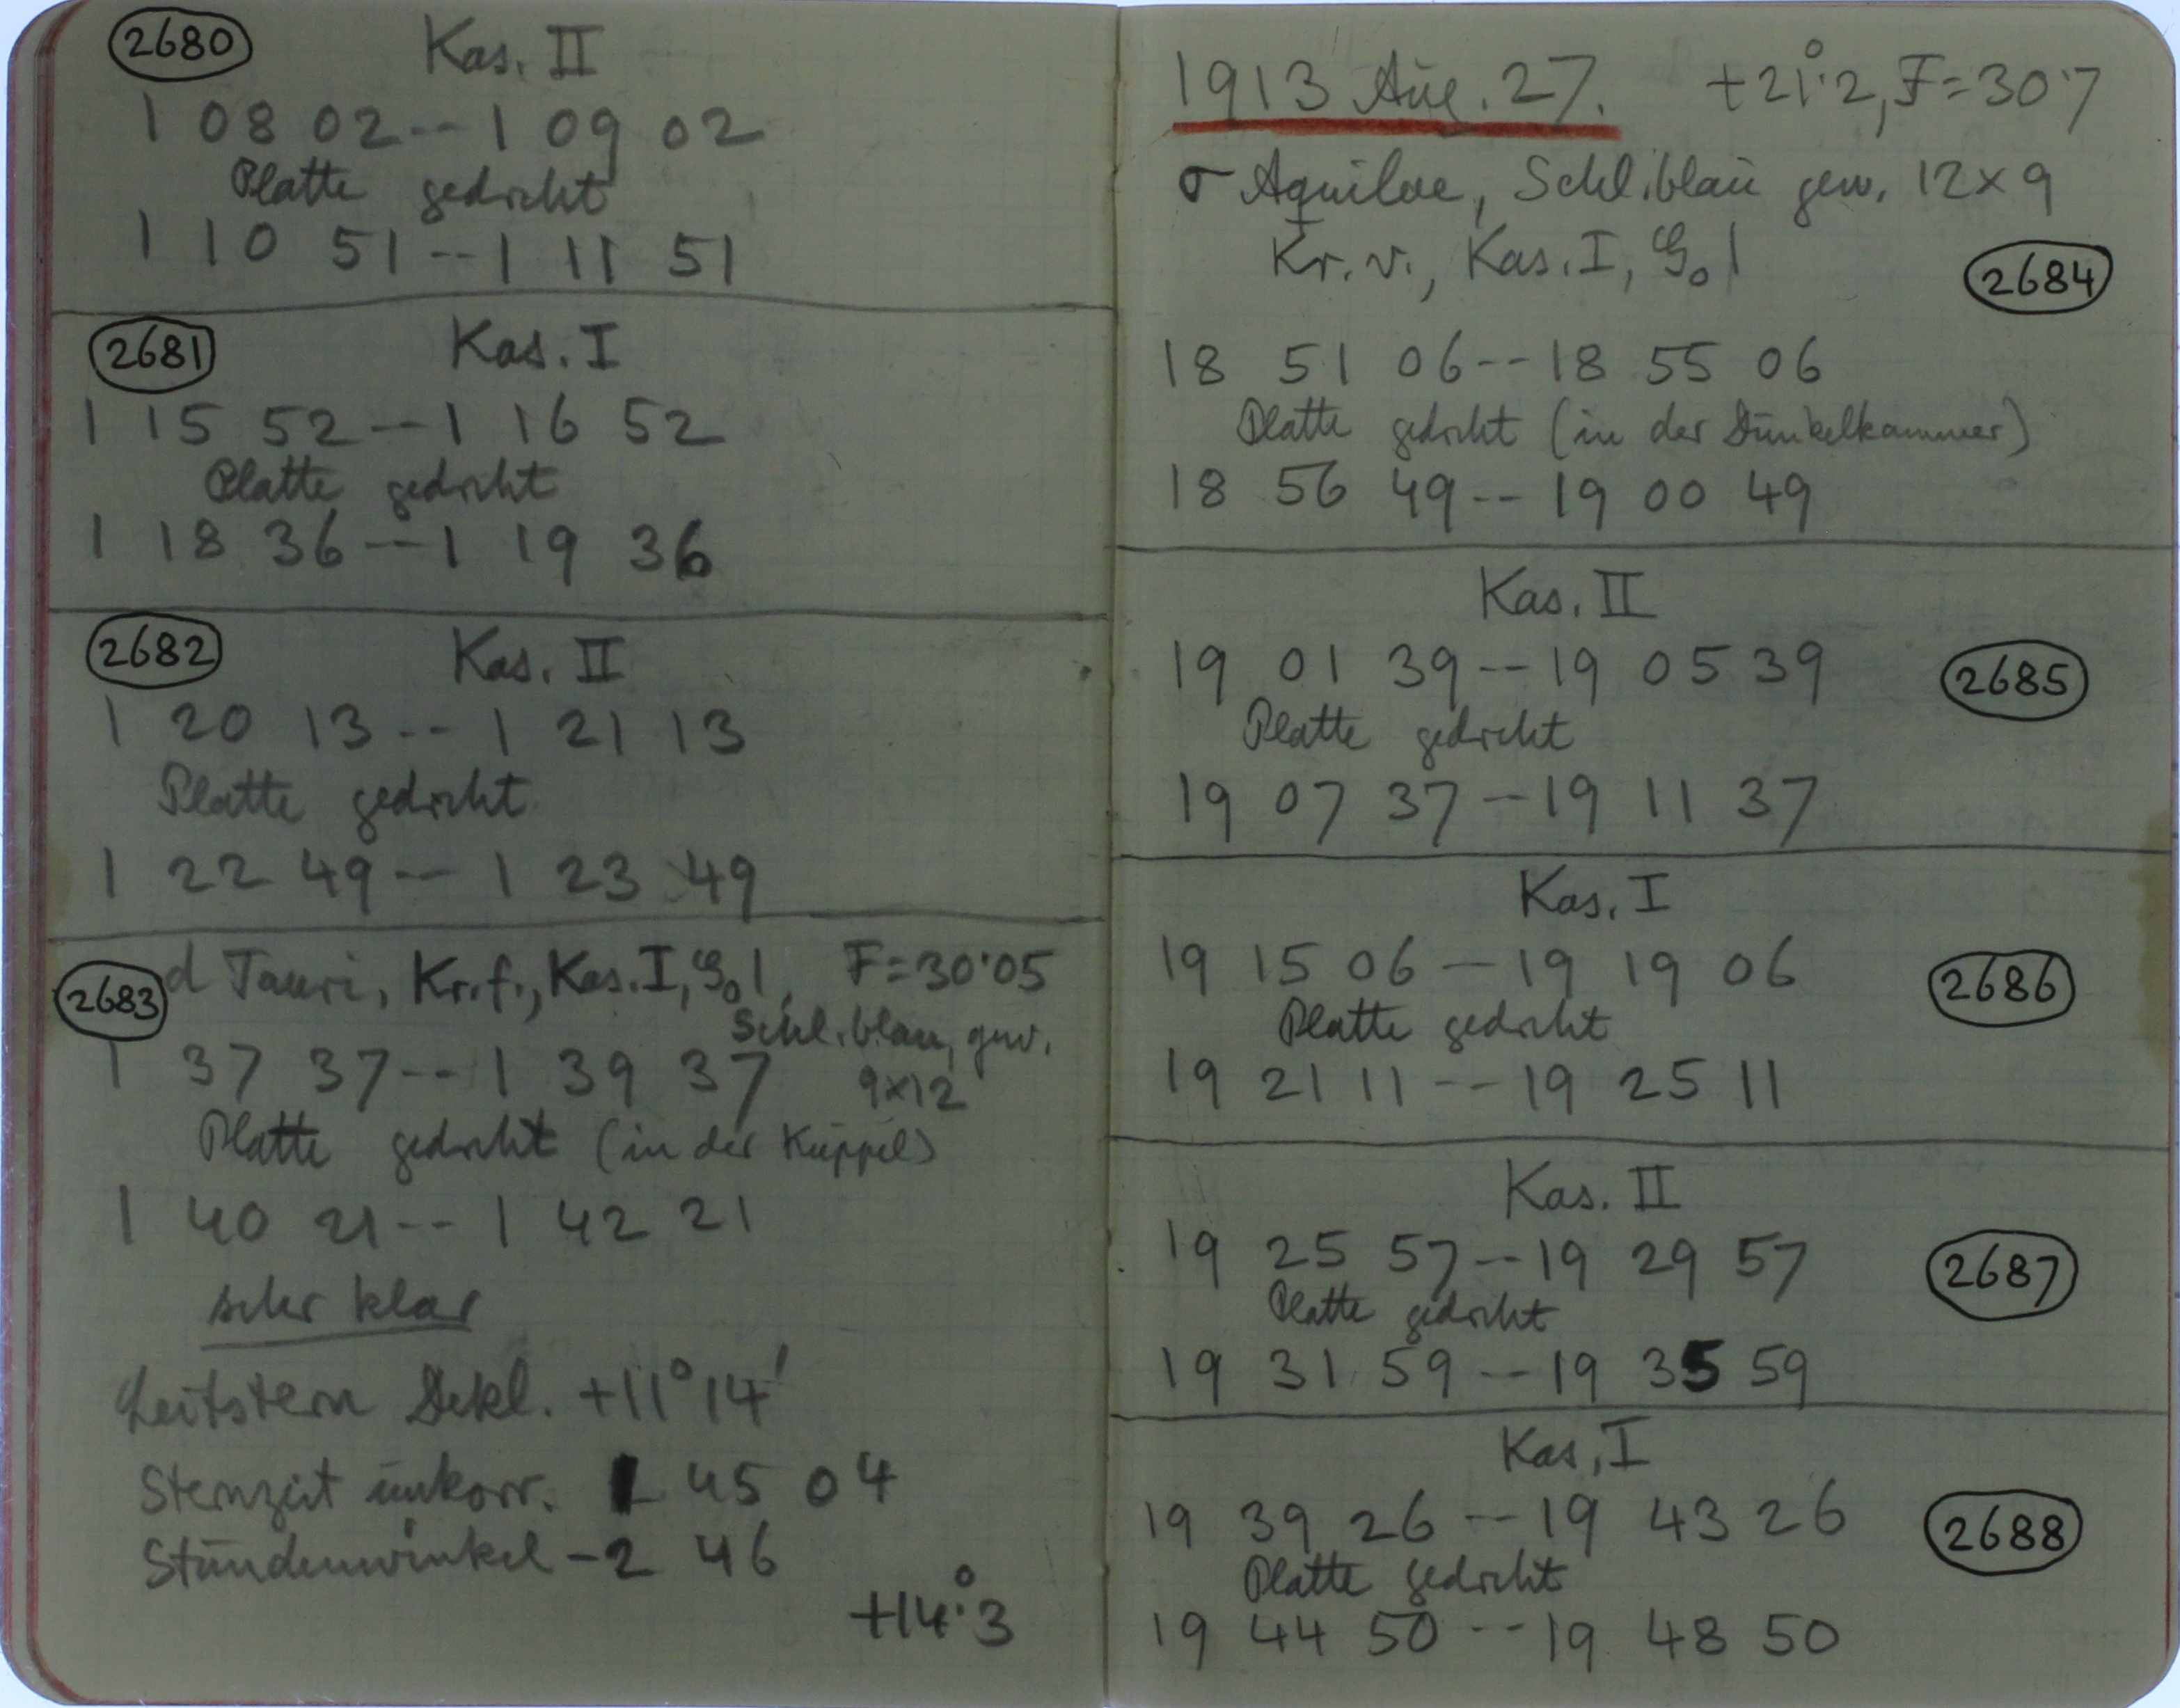 2680 Kas. II
1 08 02 -- 1 09 02
Platte gedreht
1 10 51 -- 1 11 51
2681 Kas. I
1 15 52 -- 1 16 52
Platte gedreht
1 18 36 -- 1 19 36
2682 Kas. II
1 20 13 -- 1 21 13
Platte gedreht
1 22 49 -- 1 23 49
2683 d Tauri, Kr. f., Kas. I, G₀ l, F=30.05
Schl. blau, gew.
1 37 37 -- 1 39 37 9×12
Platte gedreht (in der Kuppel)
1 40 21 -- 1 42 21
sehr klar
Leitstern Dekl. +11° 14'
Sternzeit unkorr. 1 45 04
Stundenwinkel -2 46
+14°.3
1913 Aug. 27. +21°.2, F=30.7
σ Aquilae, Schl. blau gew. 12×9
Kr. v., Kas. I, G₀ l
2684
18 51 06 -- 18 55 06
Platte gedreht (in der Dunkelkammer)
18 56 49 -- 19 00 49
Kas. II
19 01 39 -- 19 05 39 2685
Platte gedreht
19 07 37 -- 19 11 37
Kas. I
19 15 06 -- 19 19 06 2686
Platte gedreht
19 21 11 -- 19 25 11
Kas. II
19 25 57 -- 19 29 57 2687
Platte gedreht
19 31 59 -- 19 35 59
Kas. I
19 39 26 -- 19 43 26 2688
Platte gedreht
19 44 50 -- 19 48 50